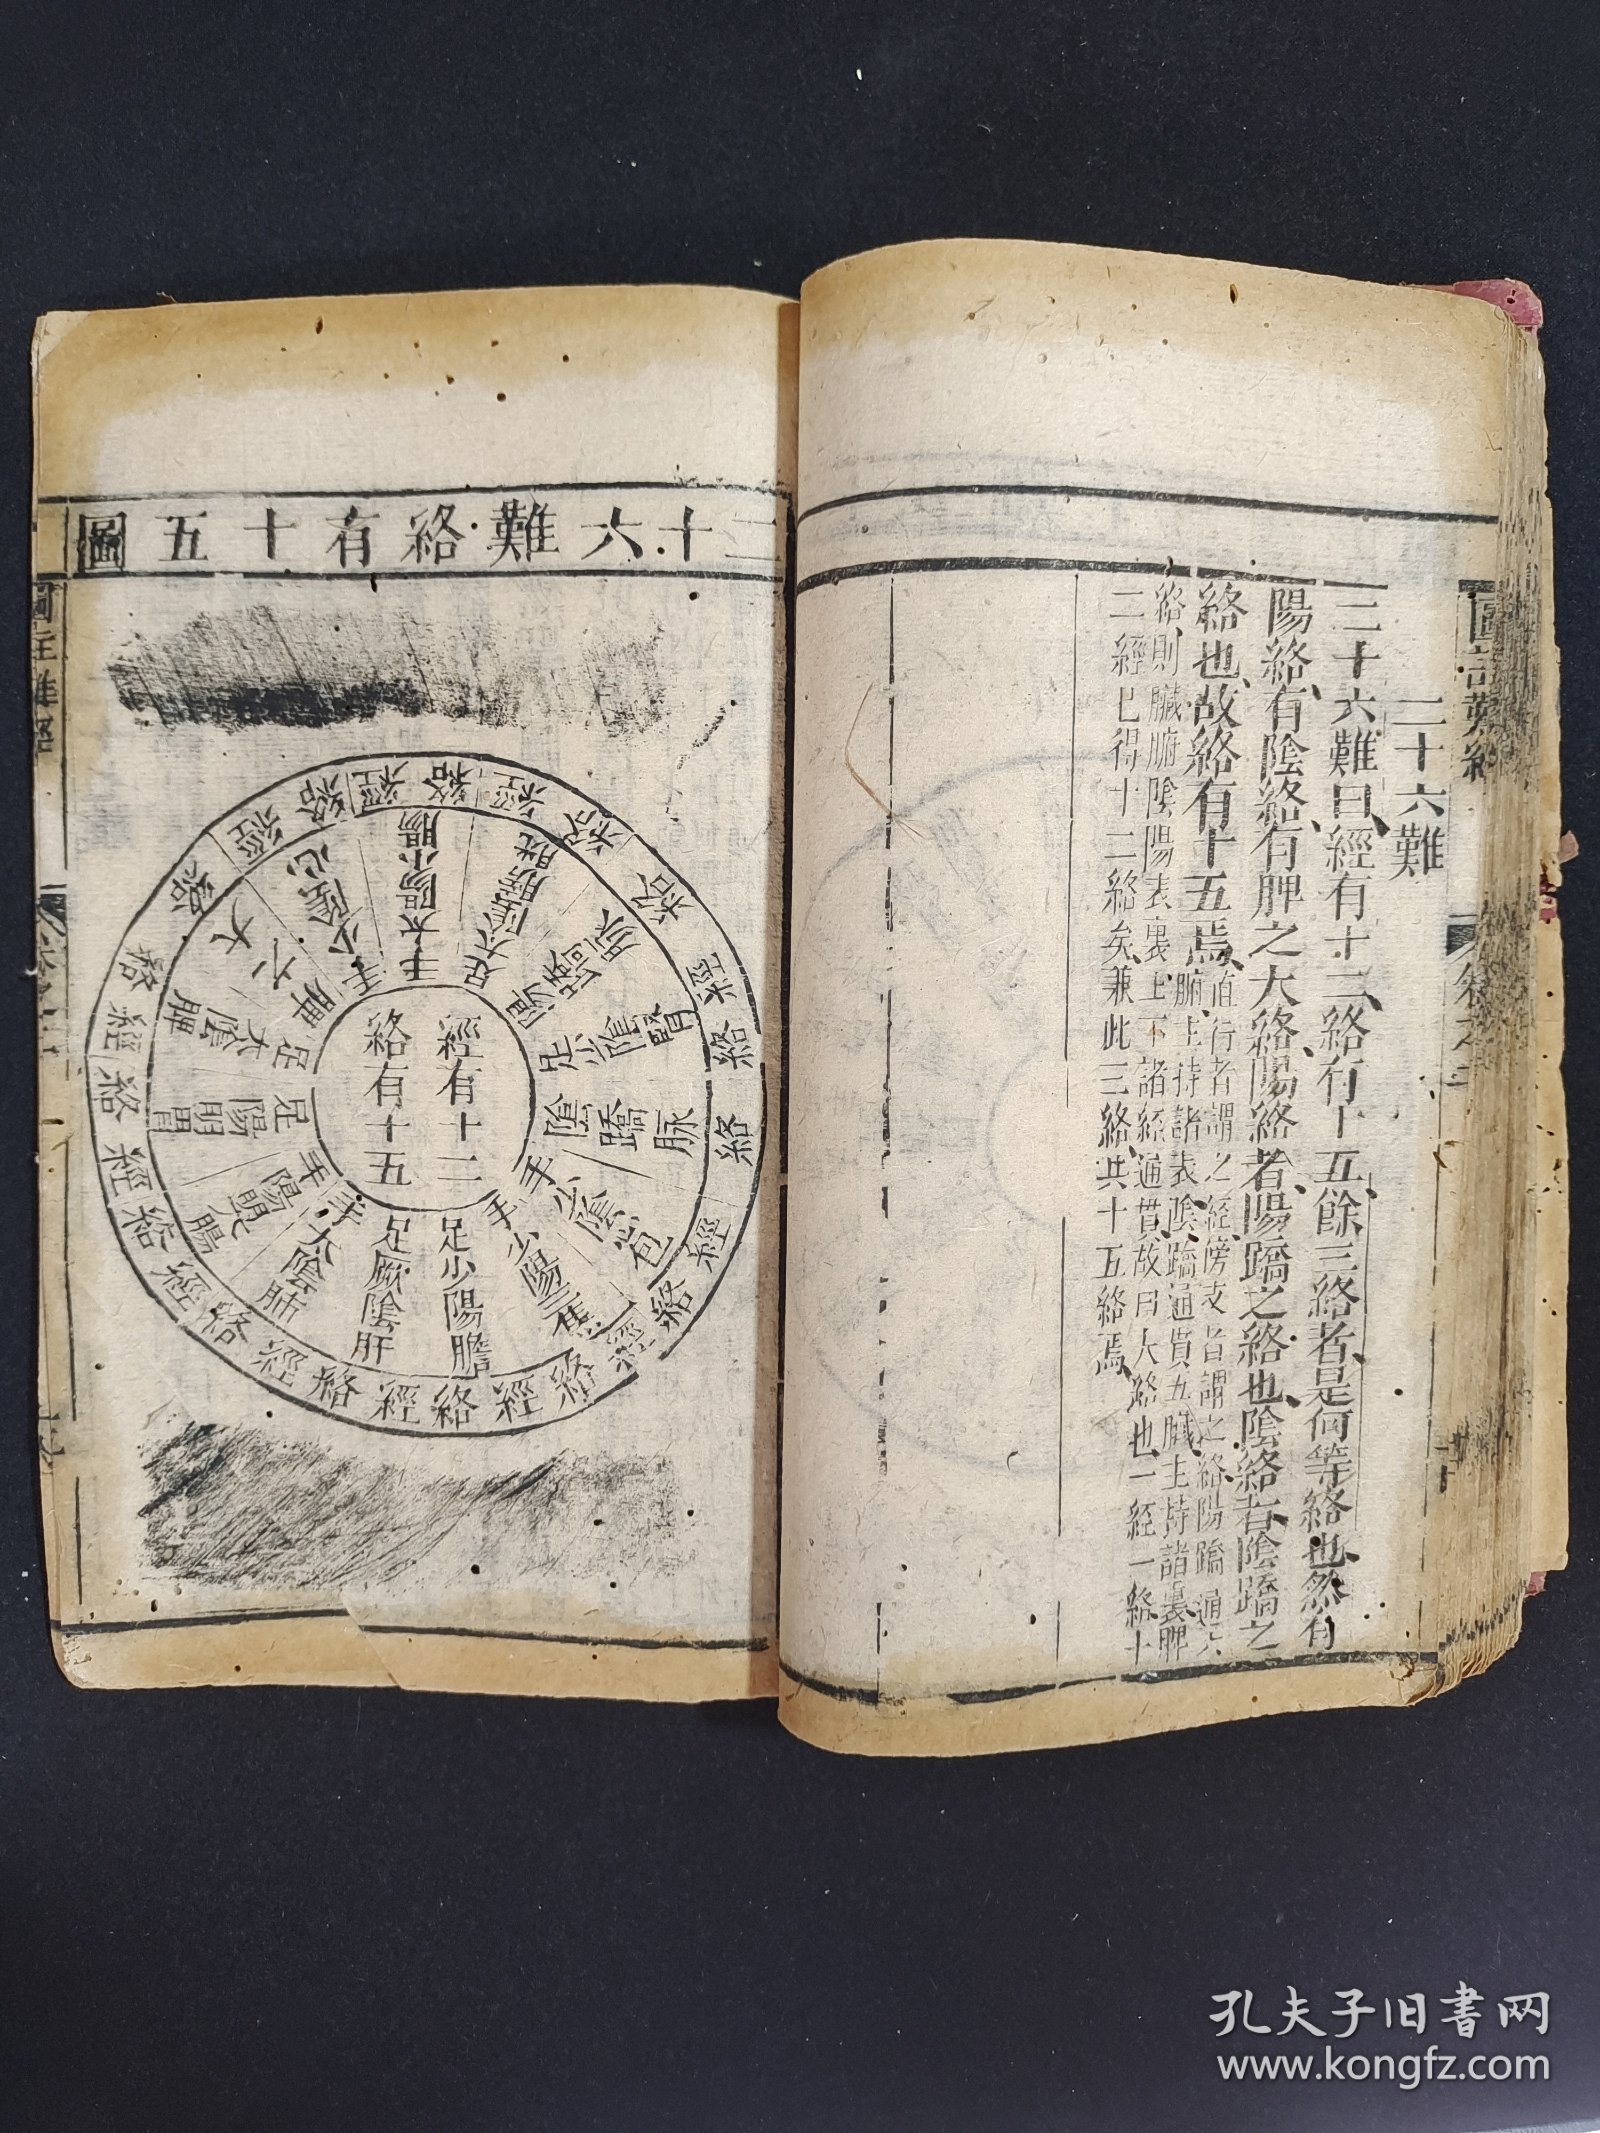 二十六難
二十六難曰經有十二絡有十五餘三絡者是何等絡也然有
陽絡有陰絡有脾之大絡陽絡者陽蹻之絡也陰絡者陰蹻之
絡也故絡有十五焉
直行者謂之經傍支者謂之絡陽蹻通六
腑主持諸表陰蹻通貫五臟主持諸裏脾
絡則臟腑陰陽表裏上下諸經通貫故曰大絡也一經一絡十
二經已得十二絡矣兼此三絡共十五絡焉
二十六難絡有十五圖
經有十二
絡有十五
手少陰心
手太陽小腸
足少陰腎
陰蹻脉
手少陽三焦
足少陽膽
足厥陰肝
手太陰肺
足陽明胃
足太陰脾
脾
大
經
絡
孔夫子旧书网
www.kongfz.com